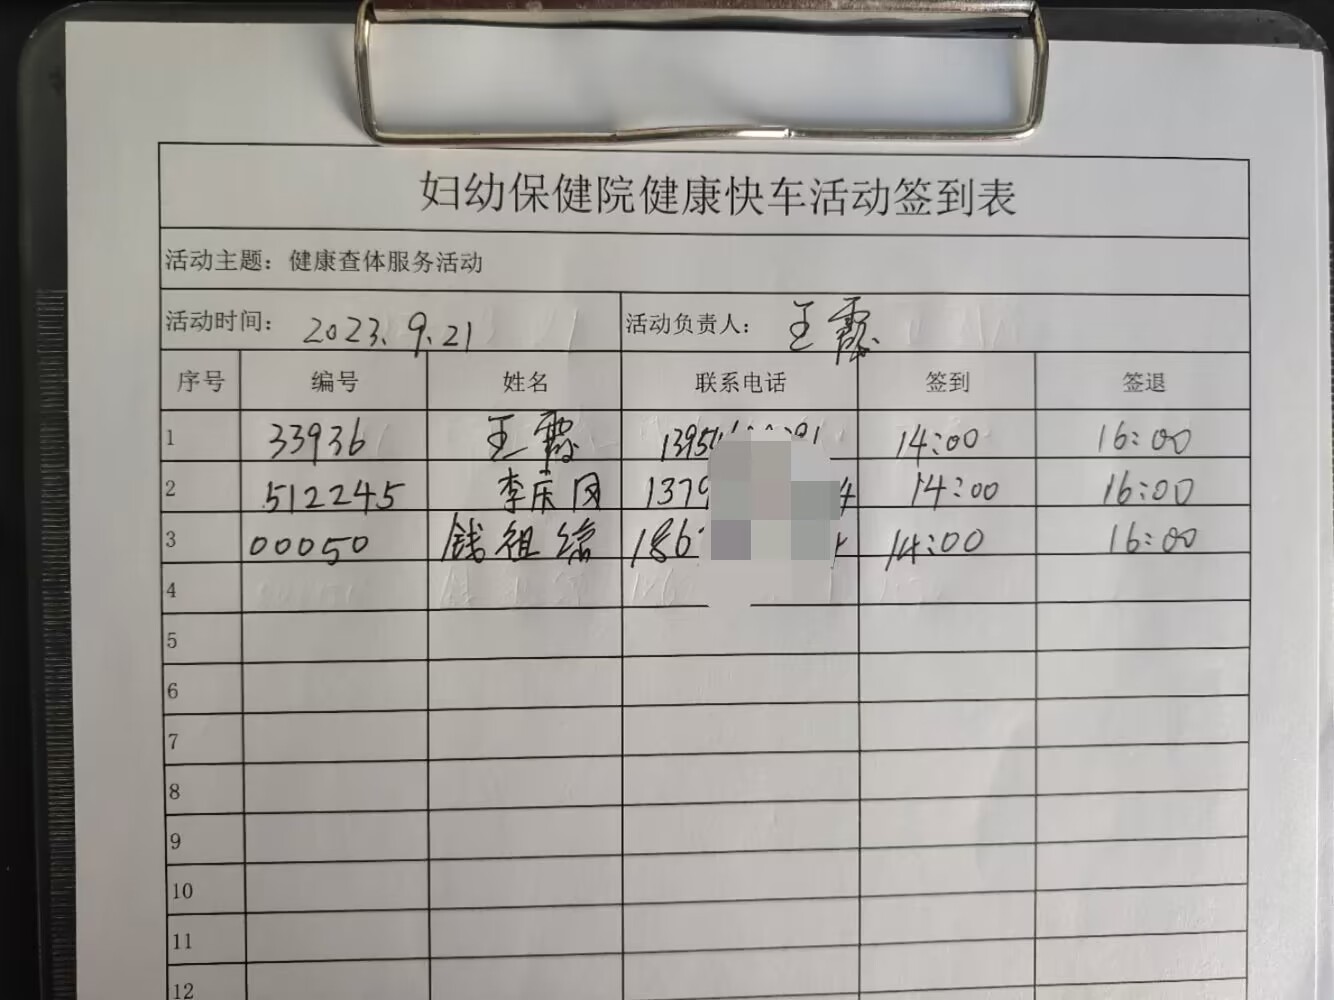 妇幼保健院健康快车活动签到表
活动主题：健康查体服务活动
活动时间： 2023.9.21 活动负责人： 王霞
序号 编号 姓名 联系电话 签到 签退
1 33936 王霞 14:00 16:00
2 512245 李庆风 1379 14:00 16:00
3 00050 钱祖 186 14:00 16:00
4
5
6
7
8
9
10
11
12